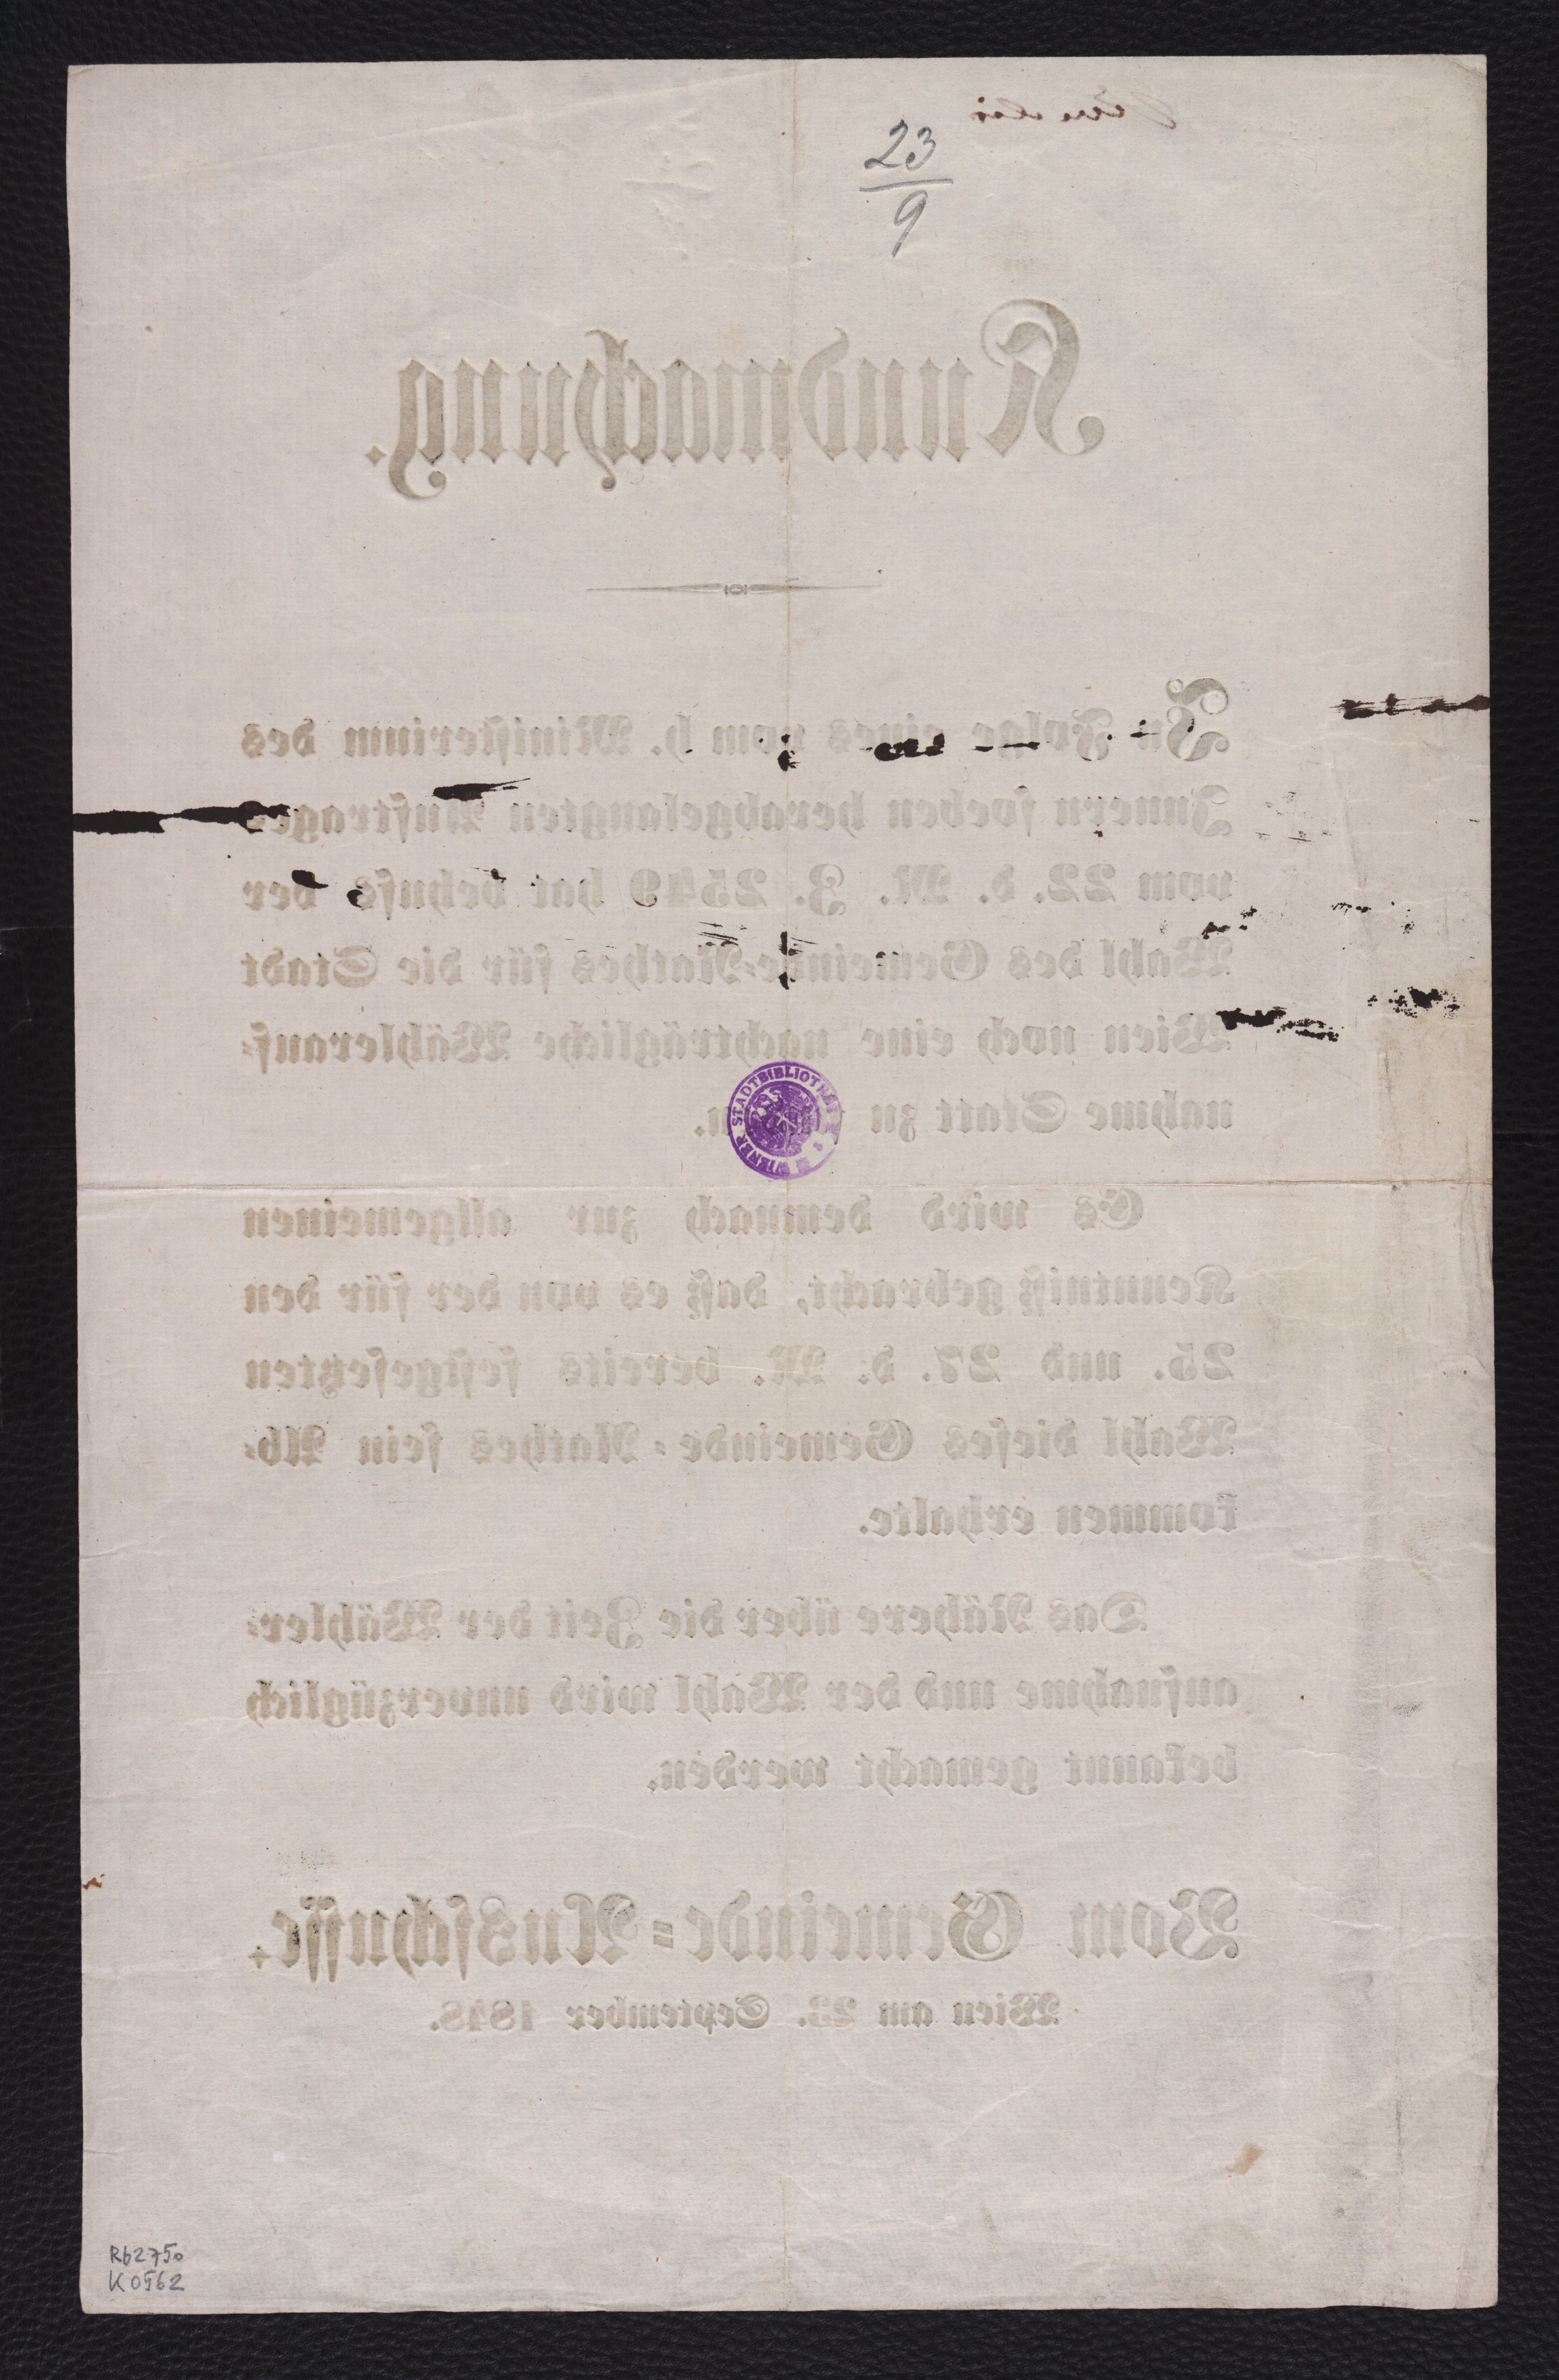 23
9
Kundmachung.
In Folge eines vom h. Ministerium des
Innern soeben herabgelangten Auftrages
vom 22. d. M. Z. 2549 hat behufs der
Wahl des Gemeinde-Rathes für die Stadt
Wien noch eine nachträgliche Wählerauf-
nahme Statt zu
Es wird demnach zur allgemeinen
Kenntniß gebracht, daß es von der für den
25. und 27. d. M. bereits festgesetzten
Wahl dieses Gemeinde-Rathes sein Ab-
kommen erhalte.
Das Nähere über die Zeit der Wähler-
aufnahme und der Wahl wird unverzüglich
bekannt gemacht werden.
Vom Gemeinde-Ausschusse.
Wien am 23. September 1848.
WIENER STADTBIBLIOTHEK
Rb2750
K0562